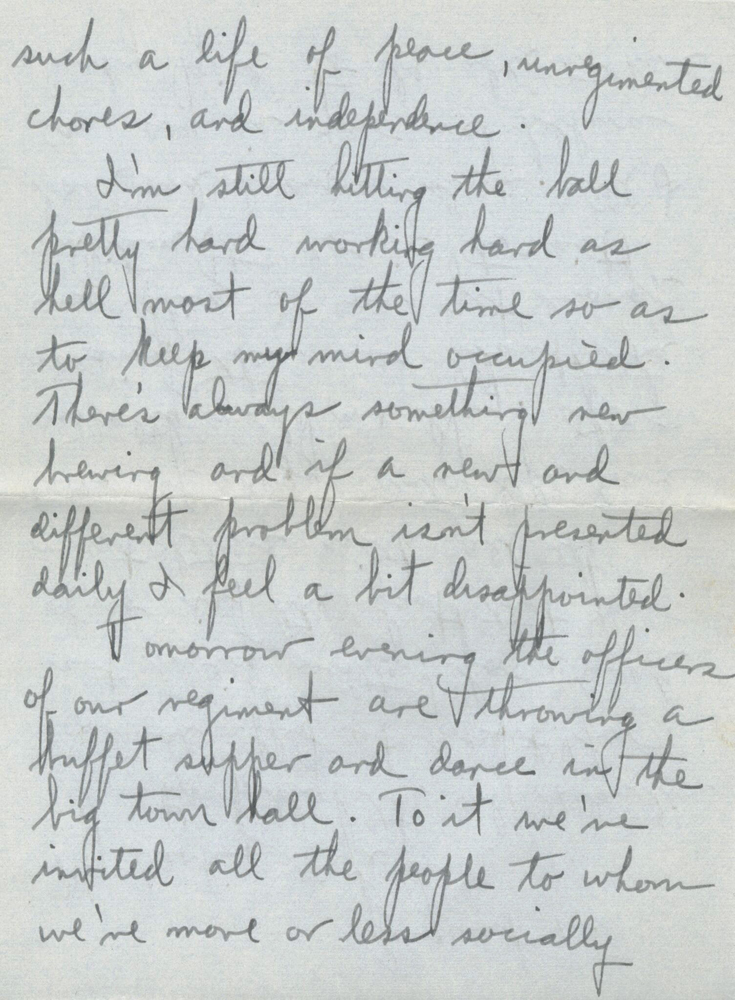 such a life of peace, unregimented
chores, and independence.
I'm still hitting the ball
pretty hard working hard as
hell most of the time so as
to keep my mind occupied.
There's always something new
brewing and if a new and
different problem isn't presented
daily I feel a bit disappointed.
Tomorrow evening the officers
of our regiment are throwing a
buffet supper and dance in the
big town hall. To it we've
invited all the people to whom
we've more or less socially